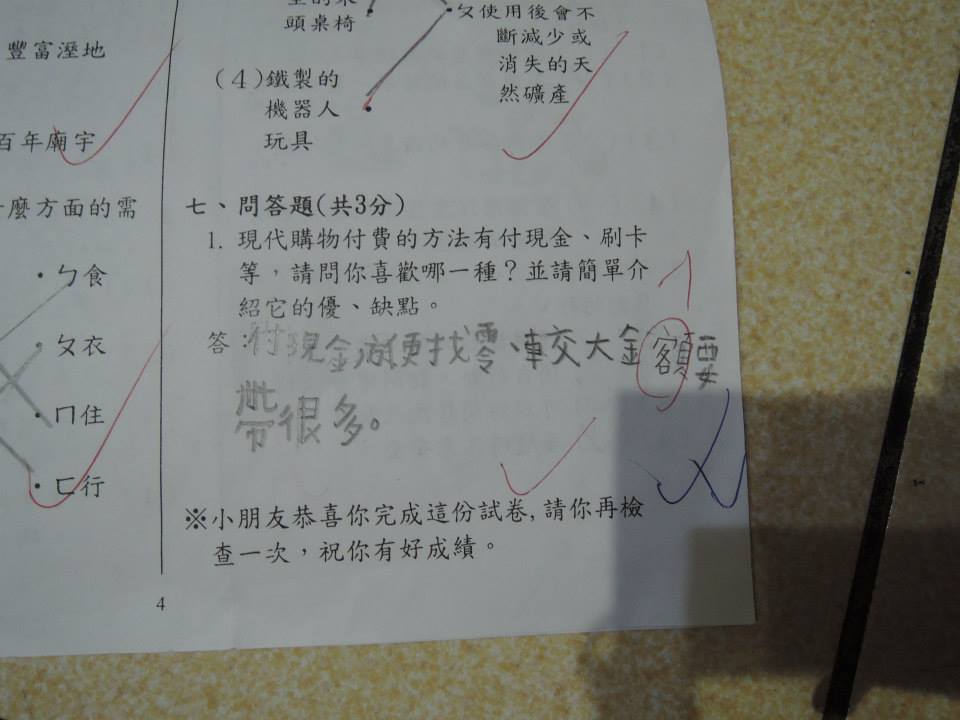 豐富溼地
百年廟宇
麼方面的需
•ㄅ食
•ㄆ衣
•ㄇ住
•ㄈ行
頭桌椅
ㄆ使用後會不
斷減少或
消失的天
然礦產
(4)鐵製的
機器人
玩具
七、問答題(共3分)
1. 現代購物付費的方法有付現金、刷卡
等,請問你喜歡哪一種?並請簡單介
紹它的優、缺點。
答:付現金方便找零、較大金額要
帶很多。
※小朋友恭喜你完成這份試卷,請你再檢
查一次,祝你有好成績。
4